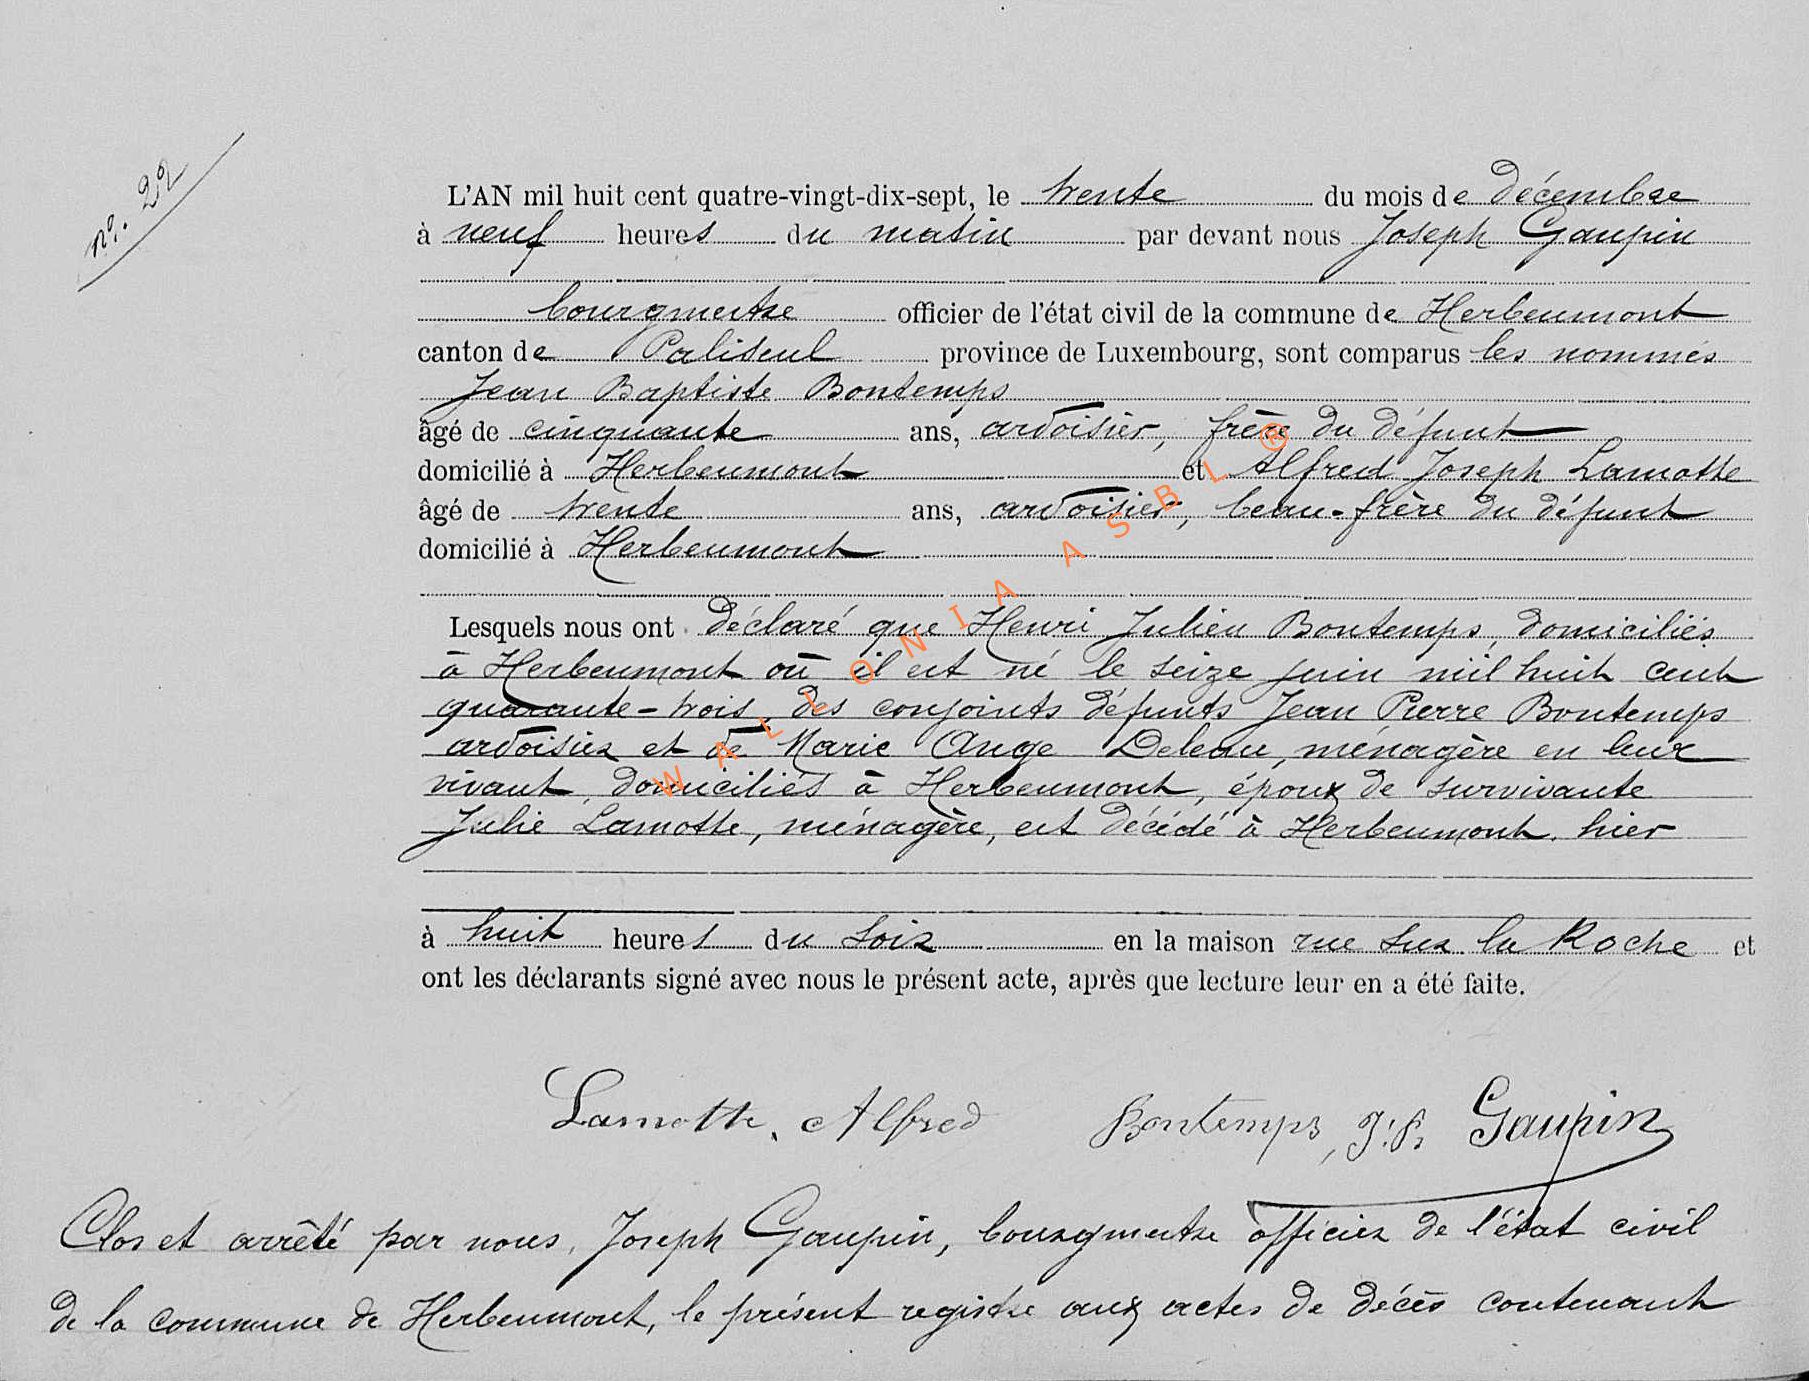 n°. 22
L'AN mil huit cent quatre-vingt-dix-sept, le trente du mois de décembre
à neuf heures du matin par devant nous Joseph Gaupin
bourgmestre officier de l'état civil de la commune de Herbeumont
canton de Paliseul province de Luxembourg, sont comparus les nommés
Jean Baptiste Bontemps
âgé de cinquante ans, ardoisier, frère du défunt
domicilié à Herbeumont et Alfred Joseph Lamotte
âgé de trente ans, ardoisier, beau-frère du défunt
domicilié à Herbeumont
Lesquels nous ont déclaré que Henri Julien Bontemps, domiciliés
à Herbeumont où il est né le seize juin mil huit cent
quarante-trois, des conjoints défunts Jean Pierre Bontemps
ardoisier et de Marie Ange Deleau, ménagère en leur
vivant, domiciliés à Herbeumont, époux de survivante
Julie Lamotte, ménagère, est décédé à Herbeumont, hier
à huit heures du soir en la maison rue sur la Roche et
ont les déclarants signé avec nous le présent acte, après que lecture leur en a été faite.
Lamotte, Alfred Bontemps, J.B. Gaupin
Clos et arrêté par nous, Joseph Gaupin, bourgmestre officier de l'état civil
de la commune de Herbeumont, le présent registre aux actes de décès contenant
WALLONIA ASBL ®